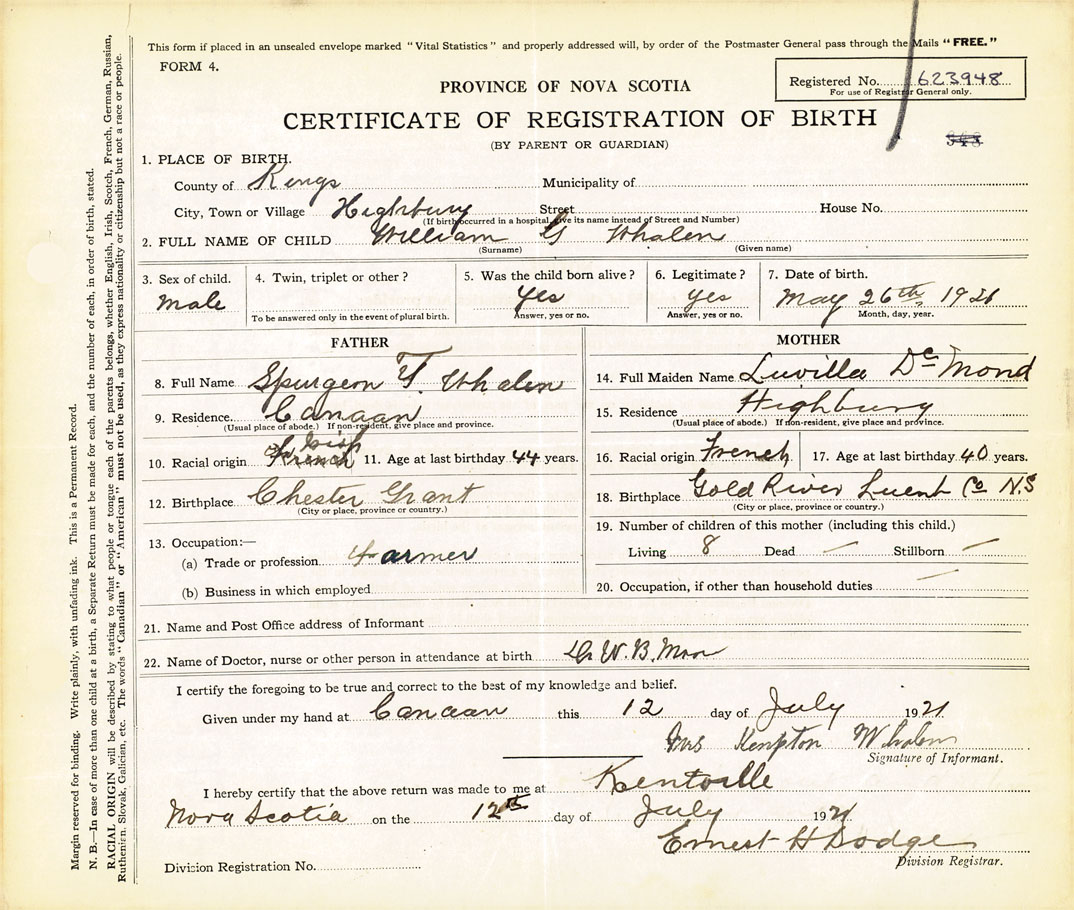 This form if placed in an unsealed envelope marked "Vital Statistics" and properly addressed will, by order of the Postmaster General pass through the Mails "FREE."
FORM 4.
Registered No. 623948
For use of Registrar General only.
PROVINCE OF NOVA SCOTIA
CERTIFICATE OF REGISTRATION OF BIRTH
(BY PARENT OR GUARDIAN)
343
1. PLACE OF BIRTH.
County of Kings Municipality of
City, Town or Village Highbury Street House No.
(If birth occurred in a hospital, give its name instead of Street and Number)
2. FULL NAME OF CHILD William G Whalen
(Surname) (Given name)
3. Sex of child. 4. Twin, triplet or other? 5. Was the child born alive? 6. Legitimate? 7. Date of birth.
Male yes yes May 26th 1921
To be answered only in the event of plural birth. Answer, yes or no. Answer, yes or no. Month, day, year.
FATHER
8. Full Name Spurgeon F Whalen
9. Residence Canaan
(Usual place of abode.) If non-resident, give place and province.
Irish
10. Racial origin French 11. Age at last birthday 44 years.
12. Birthplace Chester Grant
(City or place, province or country.)
13. Occupation:—
(a) Trade or profession Farmer
(b) Business in which employed
MOTHER
14. Full Maiden Name Luvilla DeMond
15. Residence Highbury
(Usual place of abode.) If non-resident, give place and province.
16. Racial origin French 17. Age at last birthday 40 years.
18. Birthplace Gold River Luenb Co N.S
(City or place, province or country.)
19. Number of children of this mother (including this child.)
Living 8 Dead — Stillborn —
20. Occupation, if other than household duties —
21. Name and Post Office address of Informant
22. Name of Doctor, nurse or other person in attendance at birth W. B. Moor
I certify the foregoing to be true and correct to the best of my knowledge and belief.
Given under my hand at Canaan this 12 day of July 1921
Mrs Kempton Whalen
Signature of Informant.
I hereby certify that the above return was made to me at Kentville
Nova Scotia on the 12th day of July 1921
Ernest H Dodge
Division Registrar.
Division Registration No.
Margin reserved for binding. Write plainly, with unfading ink. This is a Permanent Record.
N. B.—In case of more than one child at a birth, a Separate Return must be made for each, and the number of each, in order of birth, stated.
RACIAL ORIGIN will be described by stating to what people or tongue each of the parents belongs, whether English, Irish, Scotch, French, German, Russian,
Ruthenian, Slovak, Galician, etc. The words "Canadian" or "American" must not be used, as they express nationality or citizenship but not a race or people.